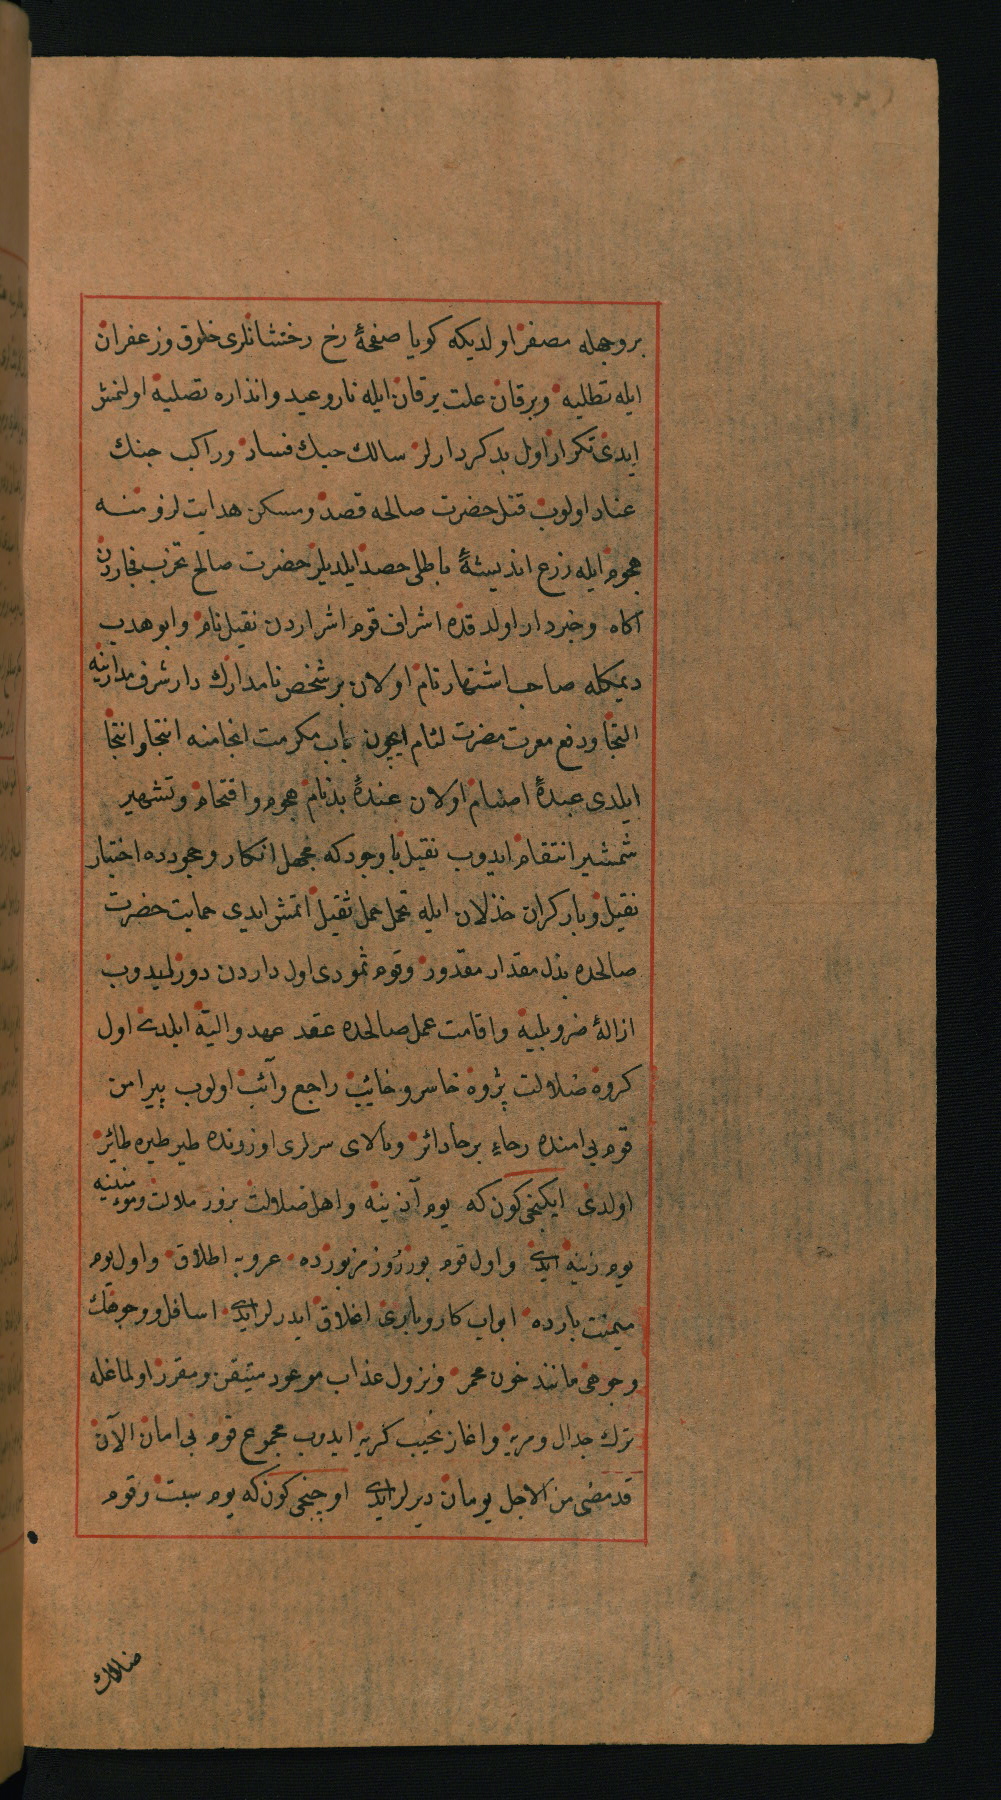 بر وجهله مصفر اولدیکه کویا صفحۀ رخ رخشانلری خلوق وزعفران
ایله تطلیه ویرقان علت یرقان ایله نار وعید وانذاره تصلیه اولنمش
ایدی تکرار اول بدکردارلر سالك فساد وراکب جنك
عناد اولوب قتل حضرت صالحه قصد ومسکن هدایت
هجوم ایله زرع اندیشۀ باطلی حصد ایلدیلر حضرت صالح تحزب فجاردن
آکاه وخبردار اولدقده اشراف قوم اشراردن نقیل نام وابو هدب
دیمکله صاحب اشتهار تام اولان بر شخص نامدارك دار شرف مدارینه
التجا ودفع معرت مضرت لئام ایچون باب مکرمت انجامنه انتجا
ایلدی عبدۀ اصنام اولان عندۀ بدنام هجوم واقتحام وتشهیر
شمشیر انتقام ایدوب نقیل باوجودکه مجهل انکار وجحودده اختیار
نقیل وبار کران خذلان ایله تحمل حمل ثقیل اتمش ایدی حمایت حضرت
صالحده بذل مقدار مقدور وقوم ثمودی اول داردن دورلیدوب
ازالۀ ضر وبلیه واقامت عمل صالحده عقد عهد والیه ایلدی اول
کروه ضلالت پژوه خاسر وخائب راجع وآئب اولوب پیرامن
قوم بی امنده رحاء برحا دائر وبالای سرلری اوزرنده طیر طیره طائر
اولدی ایکنجی کون که یوم آذینه واهل ضلالت بروز ملالت ومومنینه
یوم زینه ایدی واول قوم بوزروز مزبورده عروبه اطلاق واول یوم
میمنت بارده ابواب کاروباری اغلاق ایدرلر ایدی اسافل ووجوهك
وجوهی مانند خون محمر ونزول عذاب موعود متیقن ومقرر اولماغله
ترك جدال ومریه واغاز نحیب کریه ایدوب مجموع قوم بی امان الآن
قد مضی من الاجل یومان دیرلر ایدی اوچنجی کون که یوم سبت وقوم
ضلالك